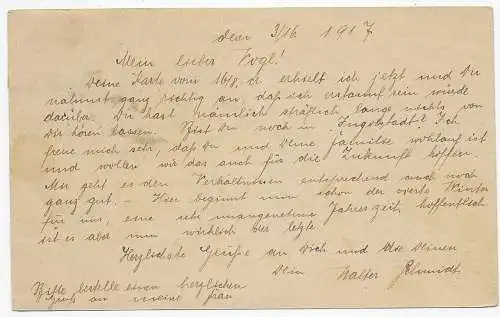 den 3/16 1917
Mein lieber Vogl!
Deine Karte vom 16/8. cr. erhielt ich jetzt und Du
nahmst ganz richtig an, daß ich erstaunt sein würde
darüber. Du hast nämlich sträflich lange nichts von
Dir hören lassen. Bist Du noch in "Ingolstadt"? Ich
freue mich sehr, daß Du und Deine Familie wohlauf ist
und wollen wir das auch für die Zukunft hoffen.
Mir geht es den Verhältnissen entsprechend auch noch
ganz gut. - Hier beginnt nun schon der vierte Winter
für uns, eine sehr unangenehme Jahreszeit hoffentlich
ist es aber nun wirklich der letzte.
Herzlichste Grüße an Dich und alle Deinen
Dein Walter Schmidt.
Bitte bestelle einen herzlichen
Gruß an meine Frau